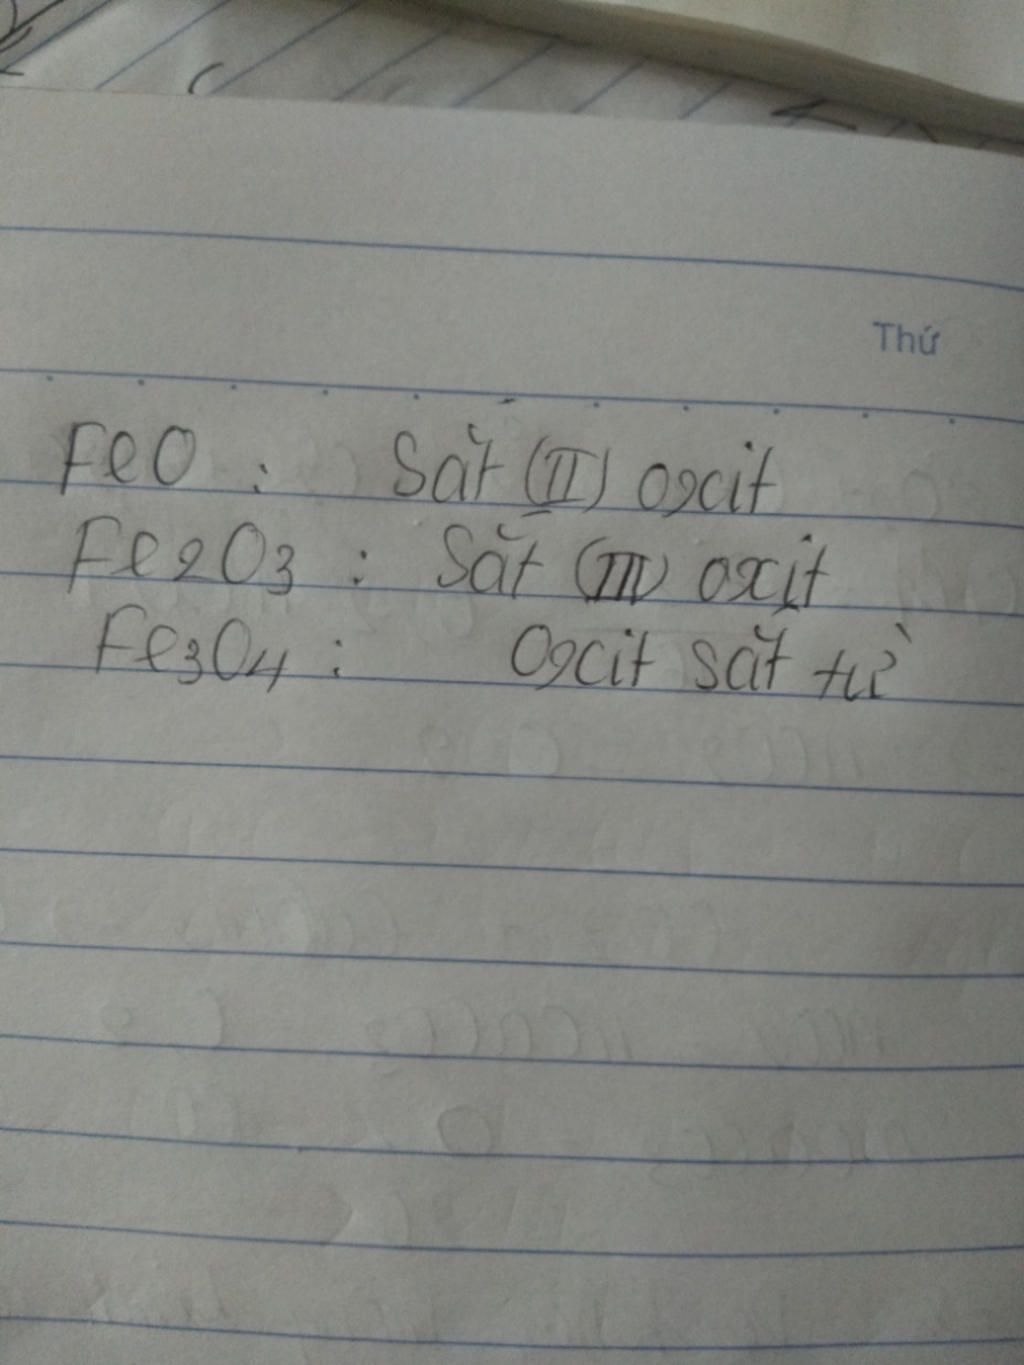 Thứ
FeO : Sắt (II) oxit
Fe2O3 : Sắt (III) oxit
Fe3O4 : Oxit sắt từ